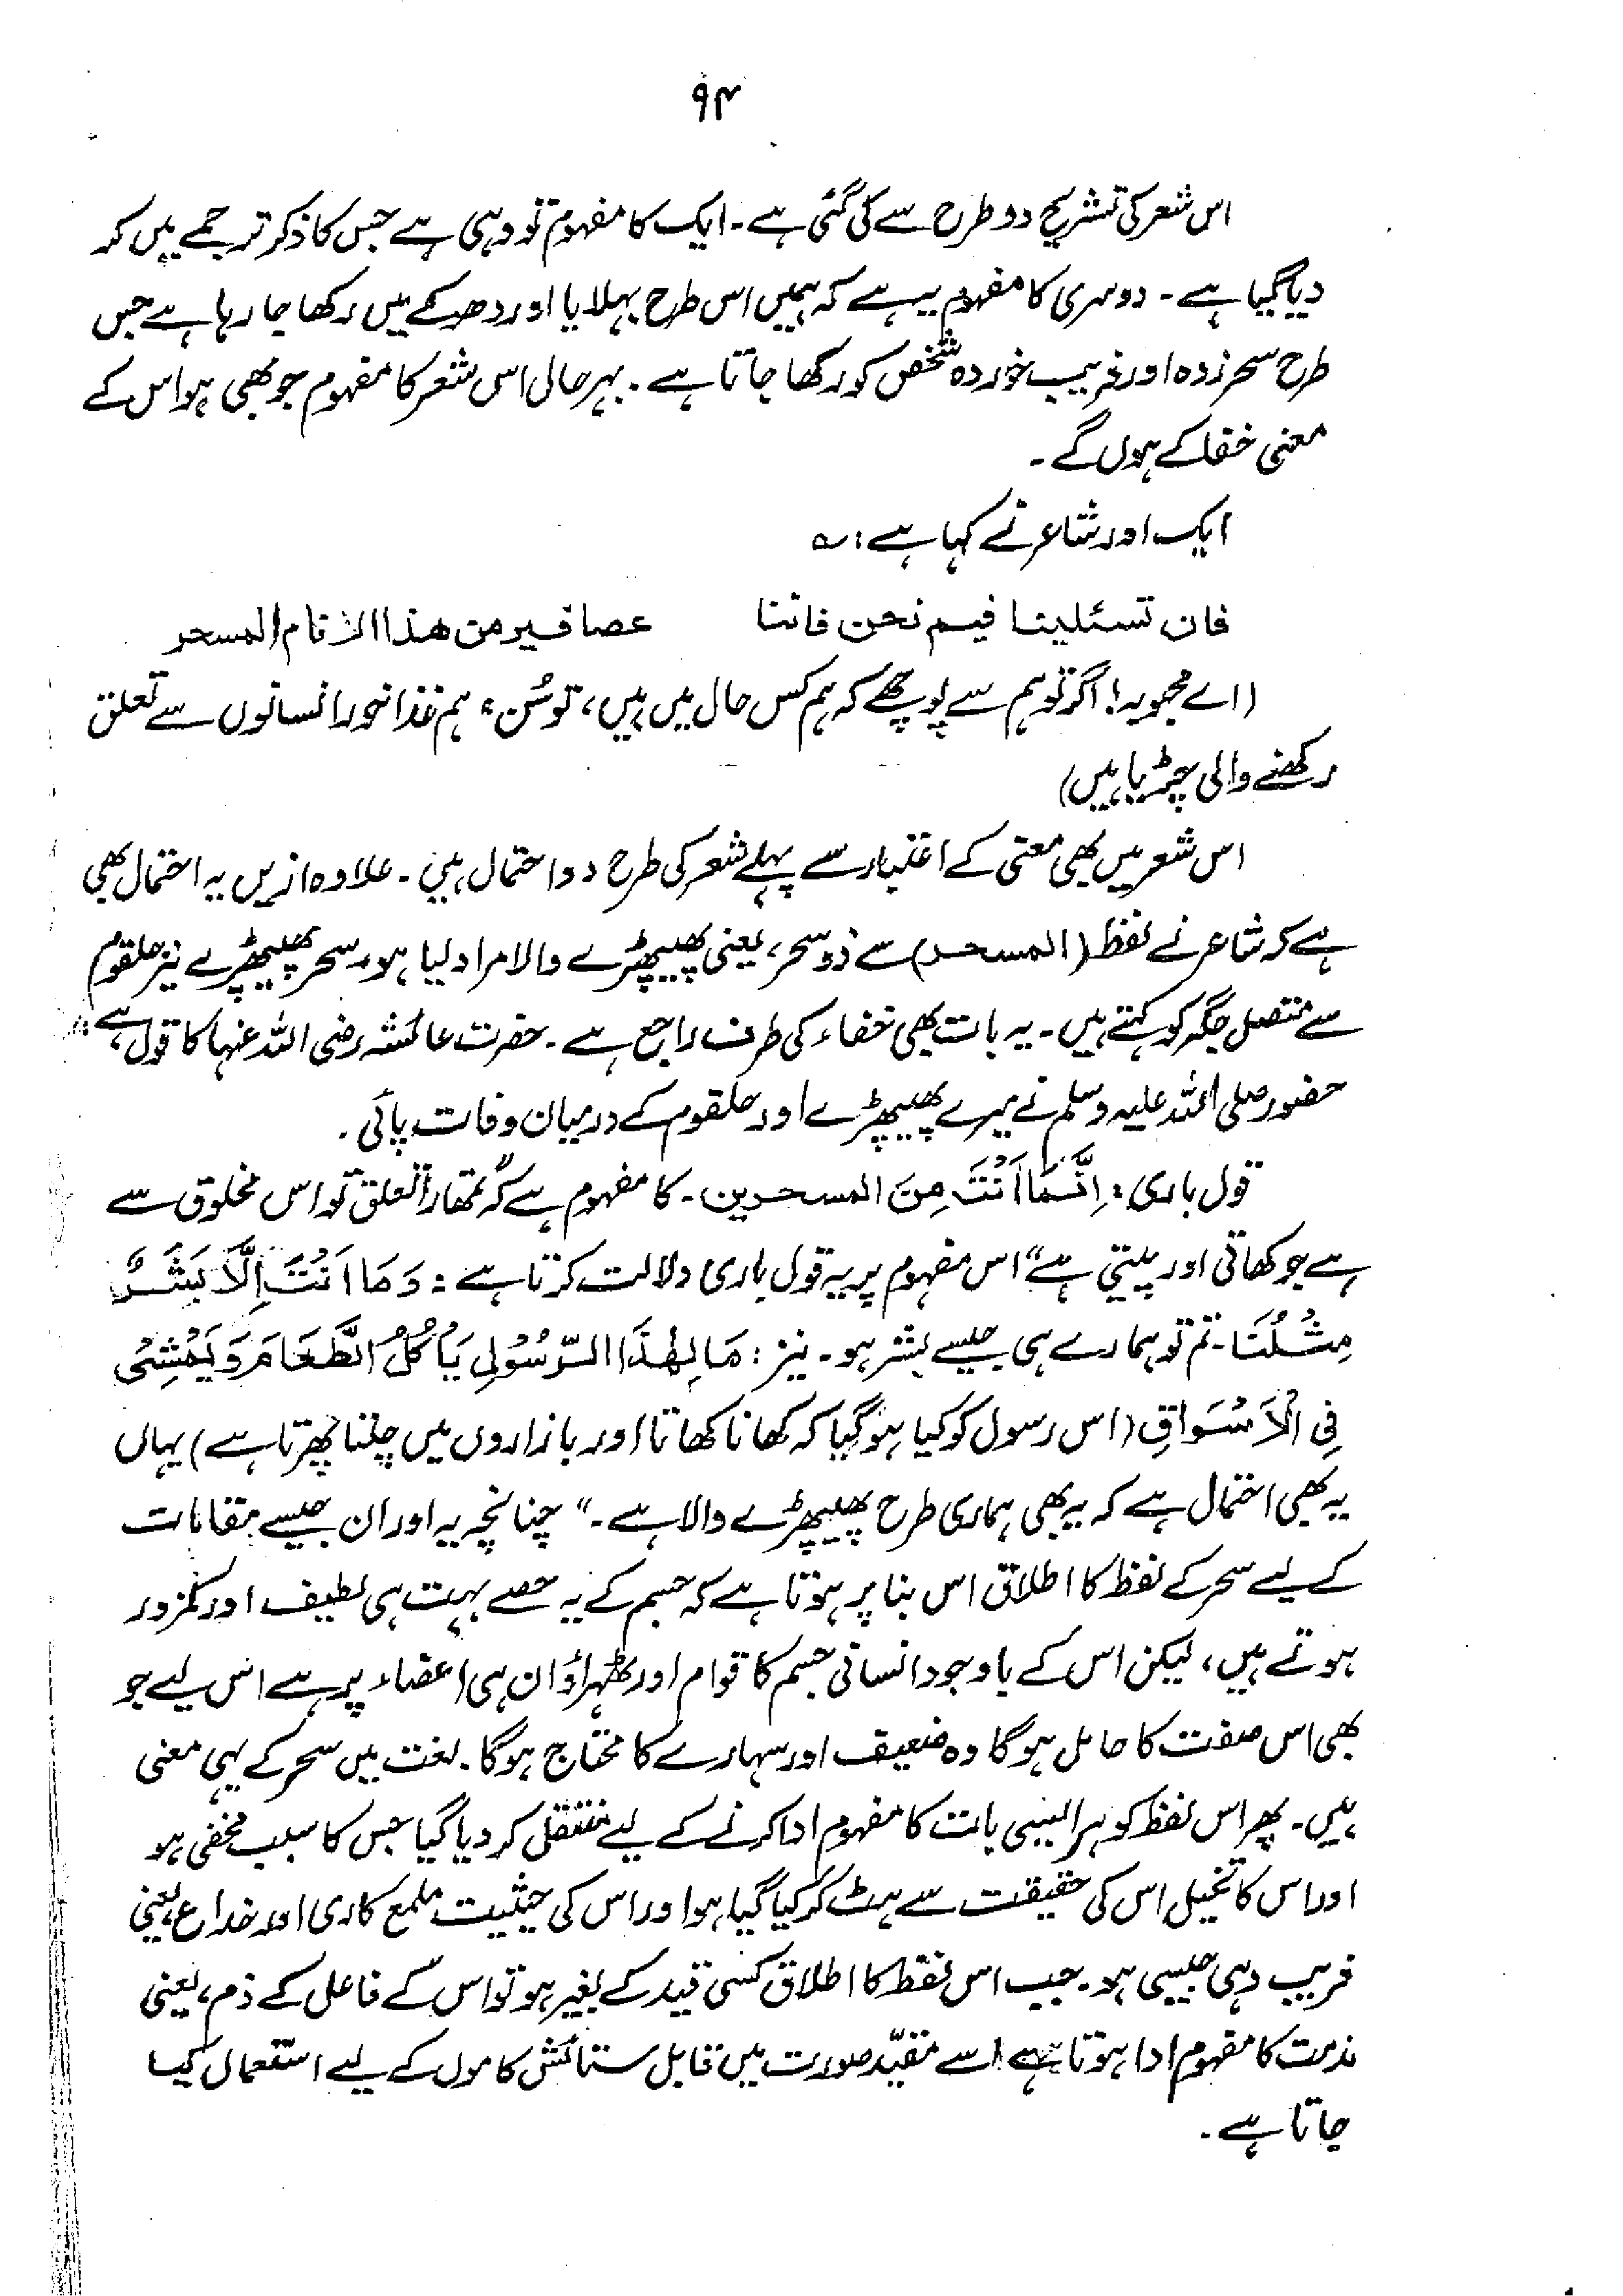 ۹۴
اس شعر کی تشریح دو طرح سے کی گئی ہے۔ ایک کا مفہوم تو وہی ہے جس کا ذکر ترجمے میں کر
دیا گیا ہے۔ دوسری کا مفہوم یہ ہے کہ ہمیں اس طرح بہلایا اور دھوکے میں رکھا جا رہا ہے جس
طرح سحر زدہ اور فریب خوردہ شخص کو رکھا جاتا ہے۔ بہرحال اس شعر کا مفہوم جو بھی ہو اس کے
معنی خفا کے ہوں گے۔
ایک اور شاعر نے کہا ہے: ؎
فان تسئلینا فیم نحن فاننا عصافیر من ھذا الانام المسحر
(اے محبوبہ! اگر تو ہم سے پوچھے کہ ہم کس حال میں ہیں، تو سُن، ہم غذا خور انسانوں سے تعلق
رکھنے والی چڑیا ہیں)
اس شعر میں بھی معنی کے اعتبار سے پہلے شعر کی طرح دو احتمال ہیں۔ علاوہ ازیں یہ احتمال بھی
ہے کہ شاعر نے لفظ (المسحر) سے ذو سحر، یعنی پھیپھڑے والا مراد لیا ہو۔ سحر پھیپھڑے نیز حلقوم
سے متصل جگہ کو کہتے ہیں۔ یہ بات بھی خفاء کی طرف راجع ہے۔ حضرت عائشہ رضی اللہ عنہا کا قول ہے:
حضور صلی اللہ علیہ وسلم نے میرے پھیپھڑے اور حلقوم کے درمیان وفات پائی۔
قول باری: اِنَّمَا اَنْتَ مِنَ المسحرین۔ کا مفہوم ہے کہ "تمھارا تعلق تو اس مخلوق سے
ہے جو کھاتی اور پیتی ہے" اس مفہوم پر یہ قول باری دلالت کرتا ہے: وَمَا اَنْتَ اِلَّا بَشَرٌ
مِثْلُنَا۔ تم تو ہمارے ہی جیسے بشر ہو۔ نیز: مَا لِھٰذَا الرَّسُوْلِ یَاْکُلُ الطَّعَامَ وَیَمْشِیْ
فِی الْاَسْوَاقِ (اس رسول کو کیا ہو گیا کہ کھانا کھاتا اور بازاروں میں چلتا پھرتا ہے) یہاں
یہ بھی احتمال ہے کہ یہ بھی ہماری طرح پھیپھڑے والا ہے۔" چنانچہ یہ اور ان جیسے مقامات
کے لیے سحر کے لفظ کا اطلاق اس بنا پر ہوتا ہے کہ جسم کے یہ حصے بہت ہی لطیف اور کمزور
ہوتے ہیں، لیکن اس کے باوجود انسانی جسم کا قوام اور ٹھہراؤ ان ہی اعضاء پر ہے اس لیے جو
بھی اس صفت کا حامل ہو گا وہ ضعیف اور سہارے کا محتاج ہو گا۔ لغت میں سحر کے یہی معنی
ہیں۔ پھر اس لفظ کو ہر ایسی بات کا مفہوم ادا کرنے کے لیے منتقل کر دیا گیا جس کا سبب مخفی ہو
اور اس کا تخیل اس کی حقیقت سے ہٹ کر کیا گیا ہو اور اس کی حیثیت ملمع کاری اور خداع یعنی
فریب دہی جیسی ہو۔ جب اس لفظ کا اطلاق کسی قید کے بغیر ہو تو اس کے فاعل کے ذم، یعنی
مذمت کا مفہوم ادا ہوتا ہے اسے مقیّد صورت میں قابل ستائش کاموں کے لیے استعمال کیا
جاتا ہے۔